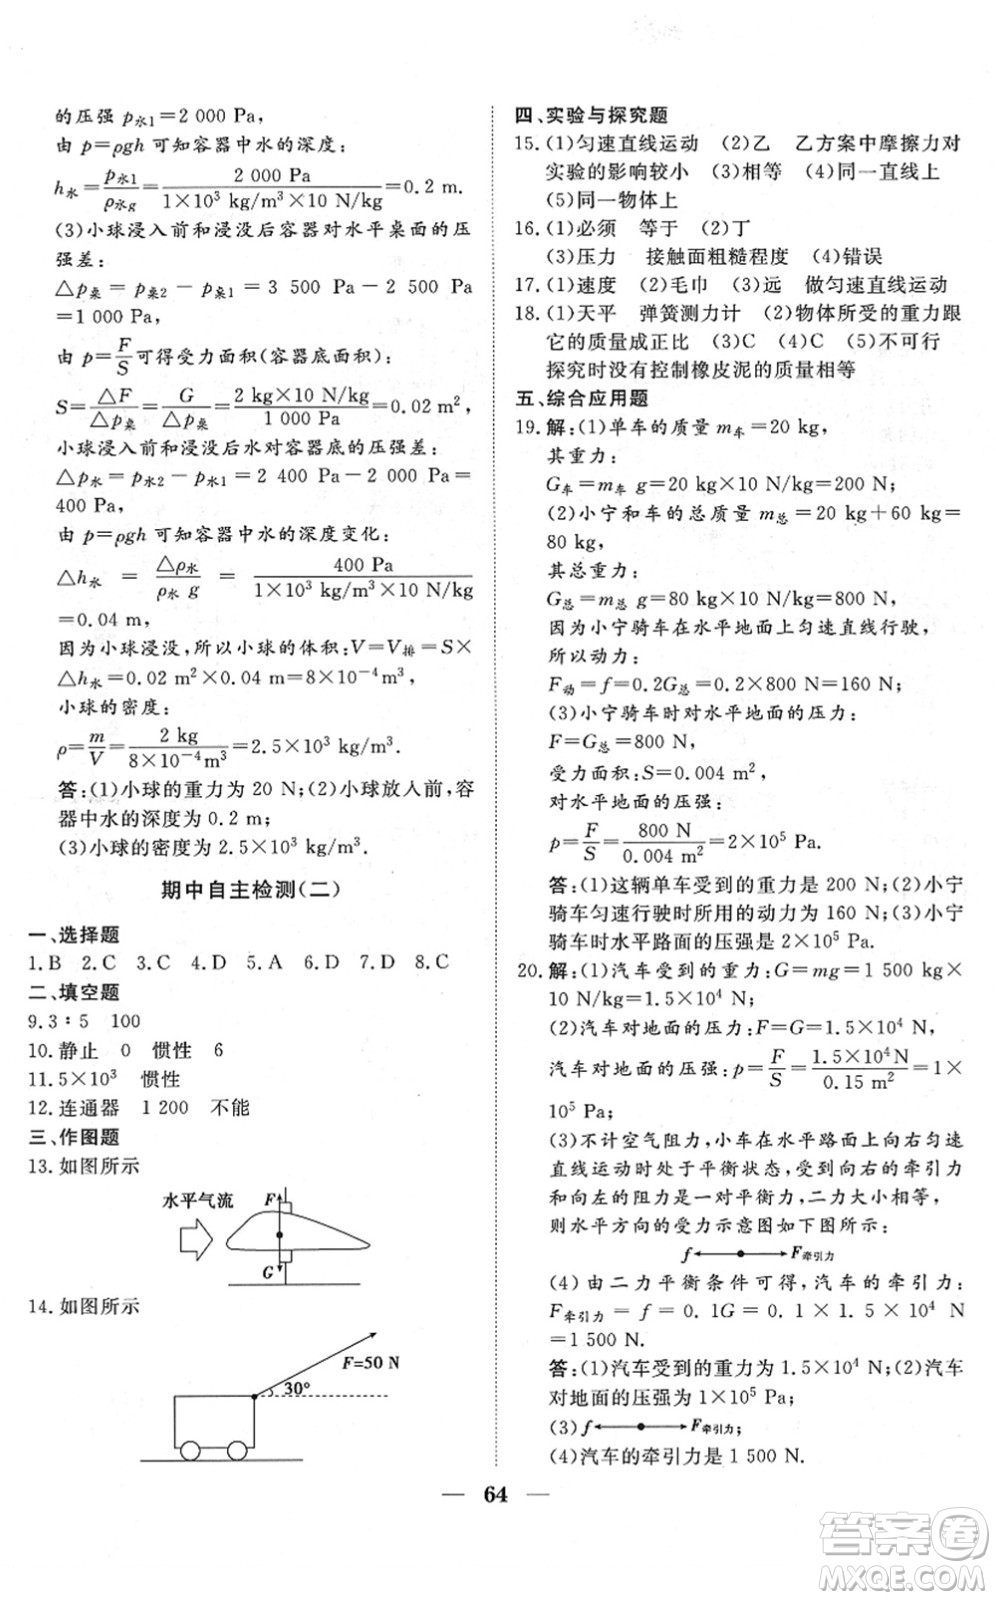 的压强 p水1=2 000 Pa
由 p=ρgh 可知容器中水的深度:
h水=p水1/ρ水g=2 000 Pa/1×10³ kg/m³×10 N/kg=0.2 m.
(3)小球浸入前和浸没后容器对水平桌面的压
强差:
△p桌=p桌2-p桌1=3 500 Pa-2 500 Pa
=1 000 Pa,
由 p=F/S可得受力面积(容器底面积):
S=△F/△p桌=G/△p桌=2 kg×10 N/kg/1 000 Pa=0.02 m²,
小球浸入前和浸没后水对容器底的压强差:
△p水=p水2-p水1=2 400 Pa-2 000 Pa=
400 Pa,
由 p=ρgh 可知容器中水的深度变化:
△h水=△ρ水/ρ水 g=400 Pa/1×10³ kg/m³×10 N/kg
=0.04 m,
因为小球浸没,所以小球的体积:V=V排=S×
△h水=0.02 m²×0.04 m=8×10⁻⁴ m³,
小球的密度:
ρ=m/V=2 kg/8×10⁻⁴m³=2.5×10³ kg/m³.
答:(1)小球的重力为 20 N;(2)小球放入前,容
器中水的深度为 0.2 m;
(3)小球的密度为 2.5×10³ kg/m³.
期中自主检测(二)
一、选择题
1.B 2.C 3.C 4.D 5.A 6.D 7.D 8.C
二、填空题
9.3∶5 100
10.静止 0 惯性 6
11.5×10³ 惯性
12.连通器 1 200 不能
三、作图题
13.如图所示
水平气流 F
G
14.如图所示
F=50 N
30°
四、实验与探究题
15.(1)匀速直线运动 (2)乙 乙方案中摩擦力对
实验的影响较小 (3)相等 (4)同一直线上
(5)同一物体上
16.(1)必须 等于 (2)丁
(3)压力 接触面粗糙程度 (4)错误
17.(1)速度 (2)毛巾 (3)远 做匀速直线运动
18.(1)天平 弹簧测力计 (2)物体所受的重力跟
它的质量成正比 (3)C (4)C (5)不可行
探究时没有控制橡皮泥的质量相等
五、综合应用题
19.解:(1)单车的质量 m车=20 kg,
其重力:
G车=m车 g=20 kg×10 N/kg=200 N;
(2)小宁和车的总质量 m总=20 kg+60 kg=
80 kg,
其总重力:
G总=m总 g=80 kg×10 N/kg=800 N,
因为小宁骑车在水平地面上匀速直线行驶,
所以动力:
F动=f=0.2G总=0.2×800 N=160 N;
(3)小宁骑车时对水平地面的压力:
F=G总=800 N,
受力面积:S=0.004 m²,
对水平地面的压强:
p=F/S=800 N/0.004 m²=2×10⁵ Pa.
答:(1)这辆单车受到的重力是 200 N;(2)小宁
骑车匀速行驶时所用的动力为 160 N;(3)小宁
骑车时水平路面的压强是 2×10⁵ Pa.
20.解:(1)汽车受到的重力:G=mg=1 500 kg×
10 N/kg=1.5×10⁴ N;
(2)汽车对地面的压力:F=G=1.5×10⁴ N,
汽车对地面的压强:p=F/S=1.5×10⁴N/0.15 m²=1×
10⁵ Pa;
(3)不计空气阻力,小车在水平路面上向右匀速
直线运动时处于平衡状态,受到向右的牵引力
和向左的阻力是一对平衡力,二力大小相等,
则水平方向的受力示意图如下图所示:
f F牵引力
(4)由二力平衡条件可得,汽车的牵引力:
F牵引力=f=0.1G=0.1×1.5×10⁴ N
=1 500 N.
答:(1)汽车受到的重力为 1.5×10⁴ N;(2)汽车
对地面的压强为 1×10⁵ Pa;
(3)f F牵引力;
(4)汽车的牵引力是 1 500 N.
— 64 —
答案圈
MXQE.COM